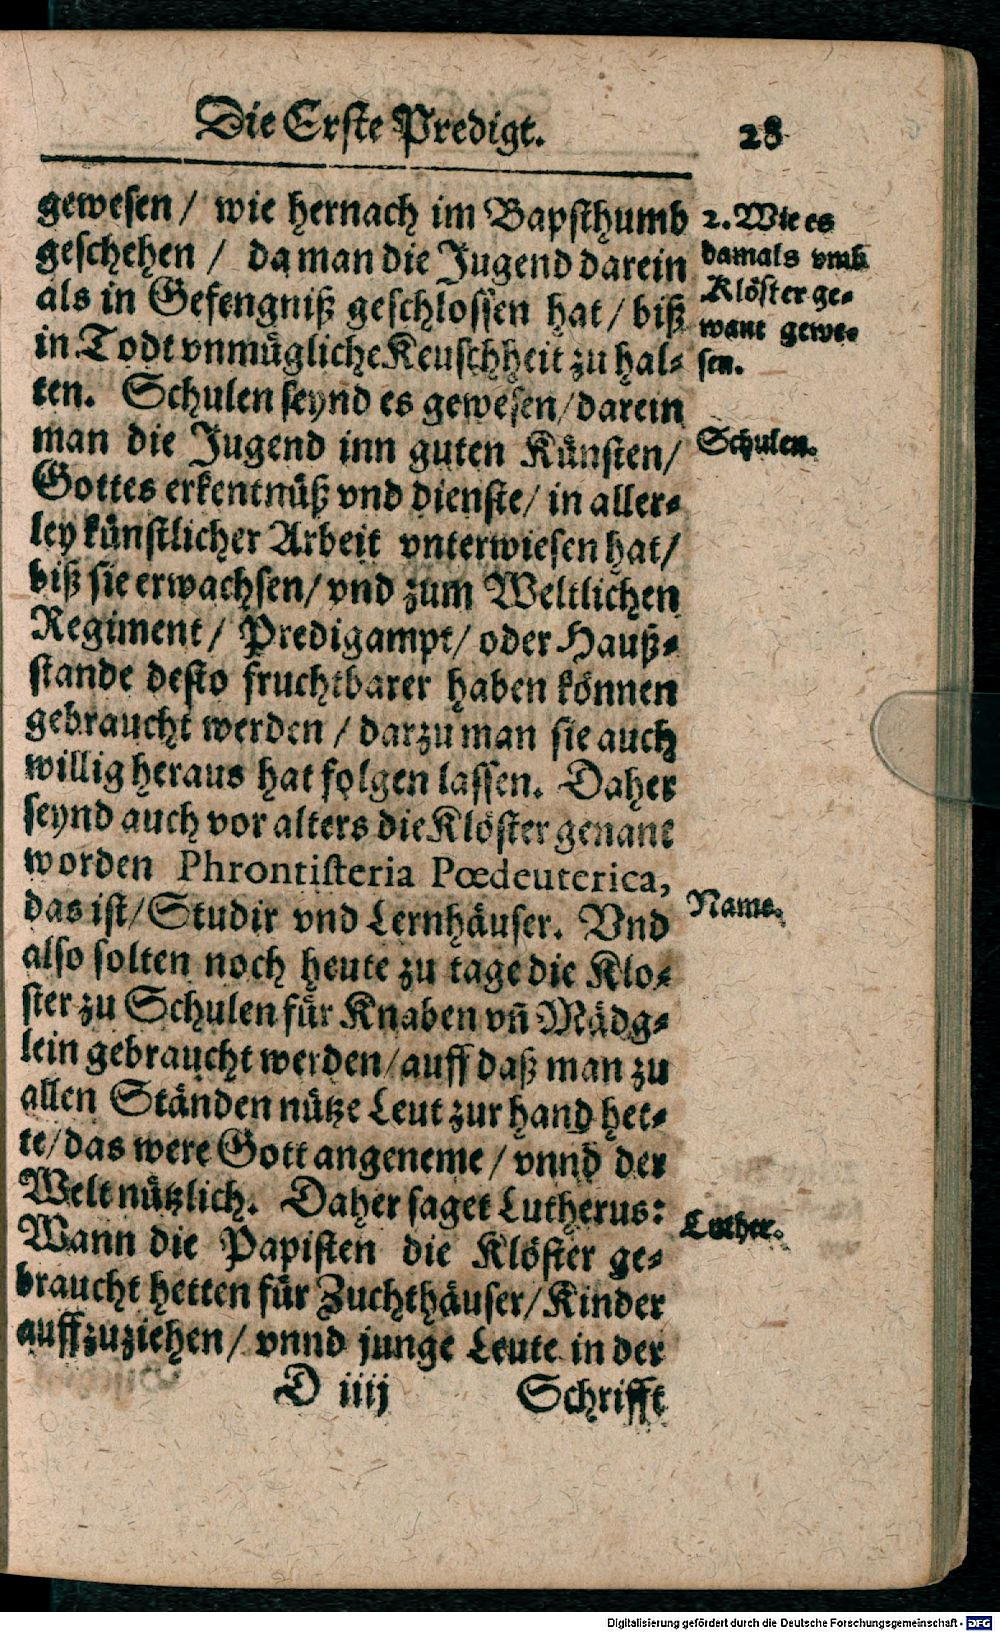 Die Erste Predigt. 28
gewesen / wie hernach im Bapsthumb
geschehen / da man die Jugend darein
als in Gefengniß geschlossen hat / biß
in Todt vnmügliche Keuschheit zu hal-
ten. Schulen seynd es gewesen / darein
man die Jugend inn guten Künsten /
Gottes erkentnüß vnd dienste / in aller-
ley künstlicher Arbeit vnterwiesen hat /
biß sie erwachsen / vnd zum Weltlichen
Regiment / Predigampt / oder Hauß-
stande desto fruchtbarer haben können
gebraucht werden / darzu man sie auch
willig heraus hat folgen lassen. Daher
seynd auch vor alters die Klöster genant
worden Phrontisteria Pœdeuterica,
das ist / Studir vnd Lernhäuser. Vnd
also solten noch heute zu tage die Klo-
ster zu Schulen für Knaben vñ Mädg-
lein gebraucht werden / auff daß man zu
allen Ständen nütze Leut zur hand het-
te / das were Gott angeneme / vnnd der
Welt nützlich. Daher saget Lutherus:
Wann die Papisten die Klöster ge-
braucht hetten für Zuchthäuser / Kinder
auffzuziehen / vnnd junge Leute in der
D iiij Schrifft
2. Wie es
damals vmb
Klöster ge-
want gewe-
sen.
Schulen.
Name.
Luther.
Digitalisierung gefördert durch die Deutsche Forschungsgemeinschaft - DFG